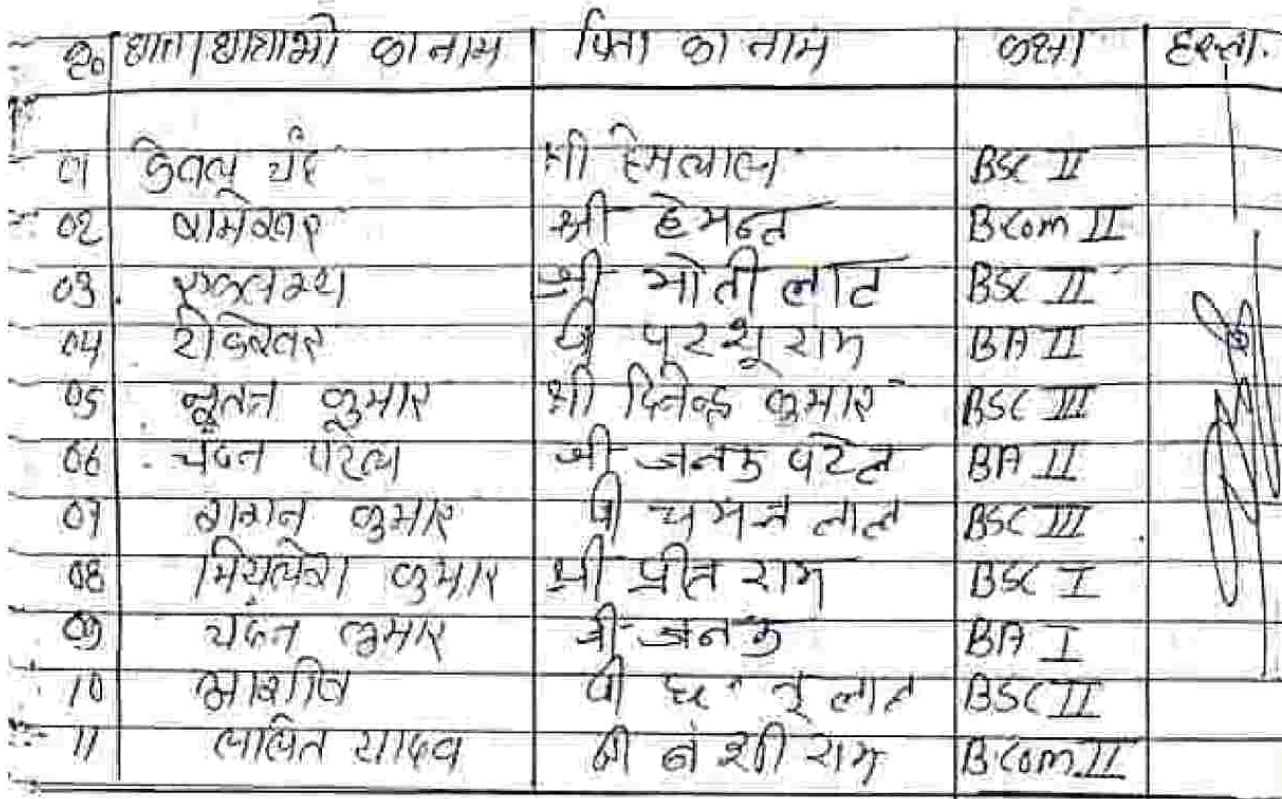 क्र० छात्र/छात्राओं का नाम पिता का नाम कक्षा हस्ता.
01 केवल चंद श्री हेमलाल BSC II
02 श्री हेमन्त B.Com II
03 एकलव्य श्री मोती लाल BSC II
04 श्री राम BA II
05 नूतन कुमार श्री कुमार BSC III
06 चंदन पटेल श्री जनक पटेल BA II
07 कुमार श्री चमन लाल BSC III
08 कुमार श्री प्रीत राम BSC I
09 चंदन कुमार श्री जनक BA I
10 आशीष श्री लाल BSC II
11 ललित यादव श्री बंशी राम B.Com II